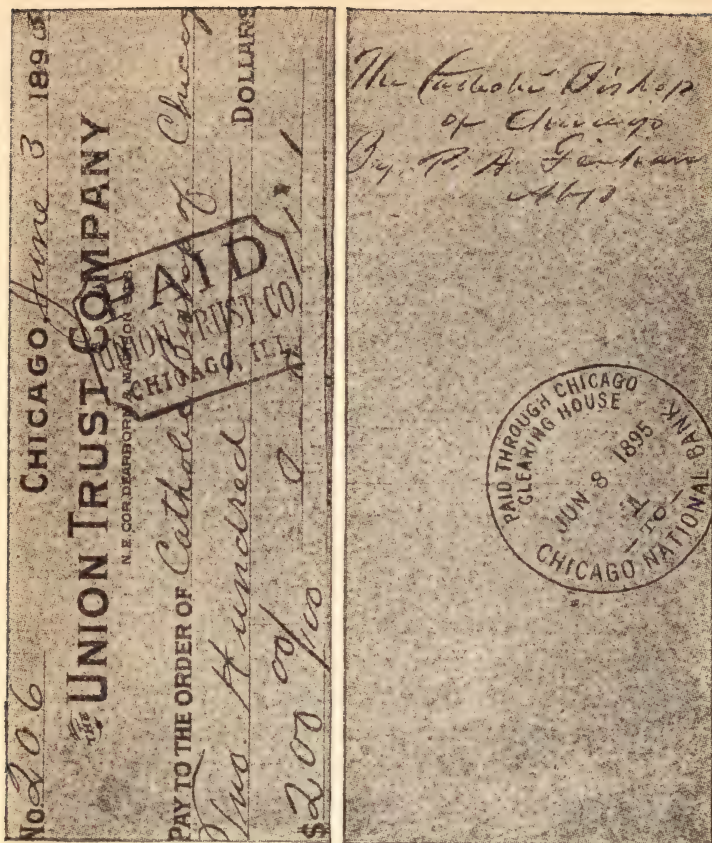 No 206 CHICAGO, June 3 1895
THE UNION TRUST COMPANY
N.E. COR. DEARBORN & MADISON STS.
PAY TO THE ORDER OF Catholic Bishop of Chicago
Two Hundred DOLLARS
$200 00/100
PAID
UNION TRUST CO.
CHICAGO, ILL.
The Catholic Bishop
of Chicago
By P. A. Feehan
Abp
PAID THROUGH CHICAGO
CLEARING HOUSE
JUN 8 1895
CHICAGO NATIONAL BANK